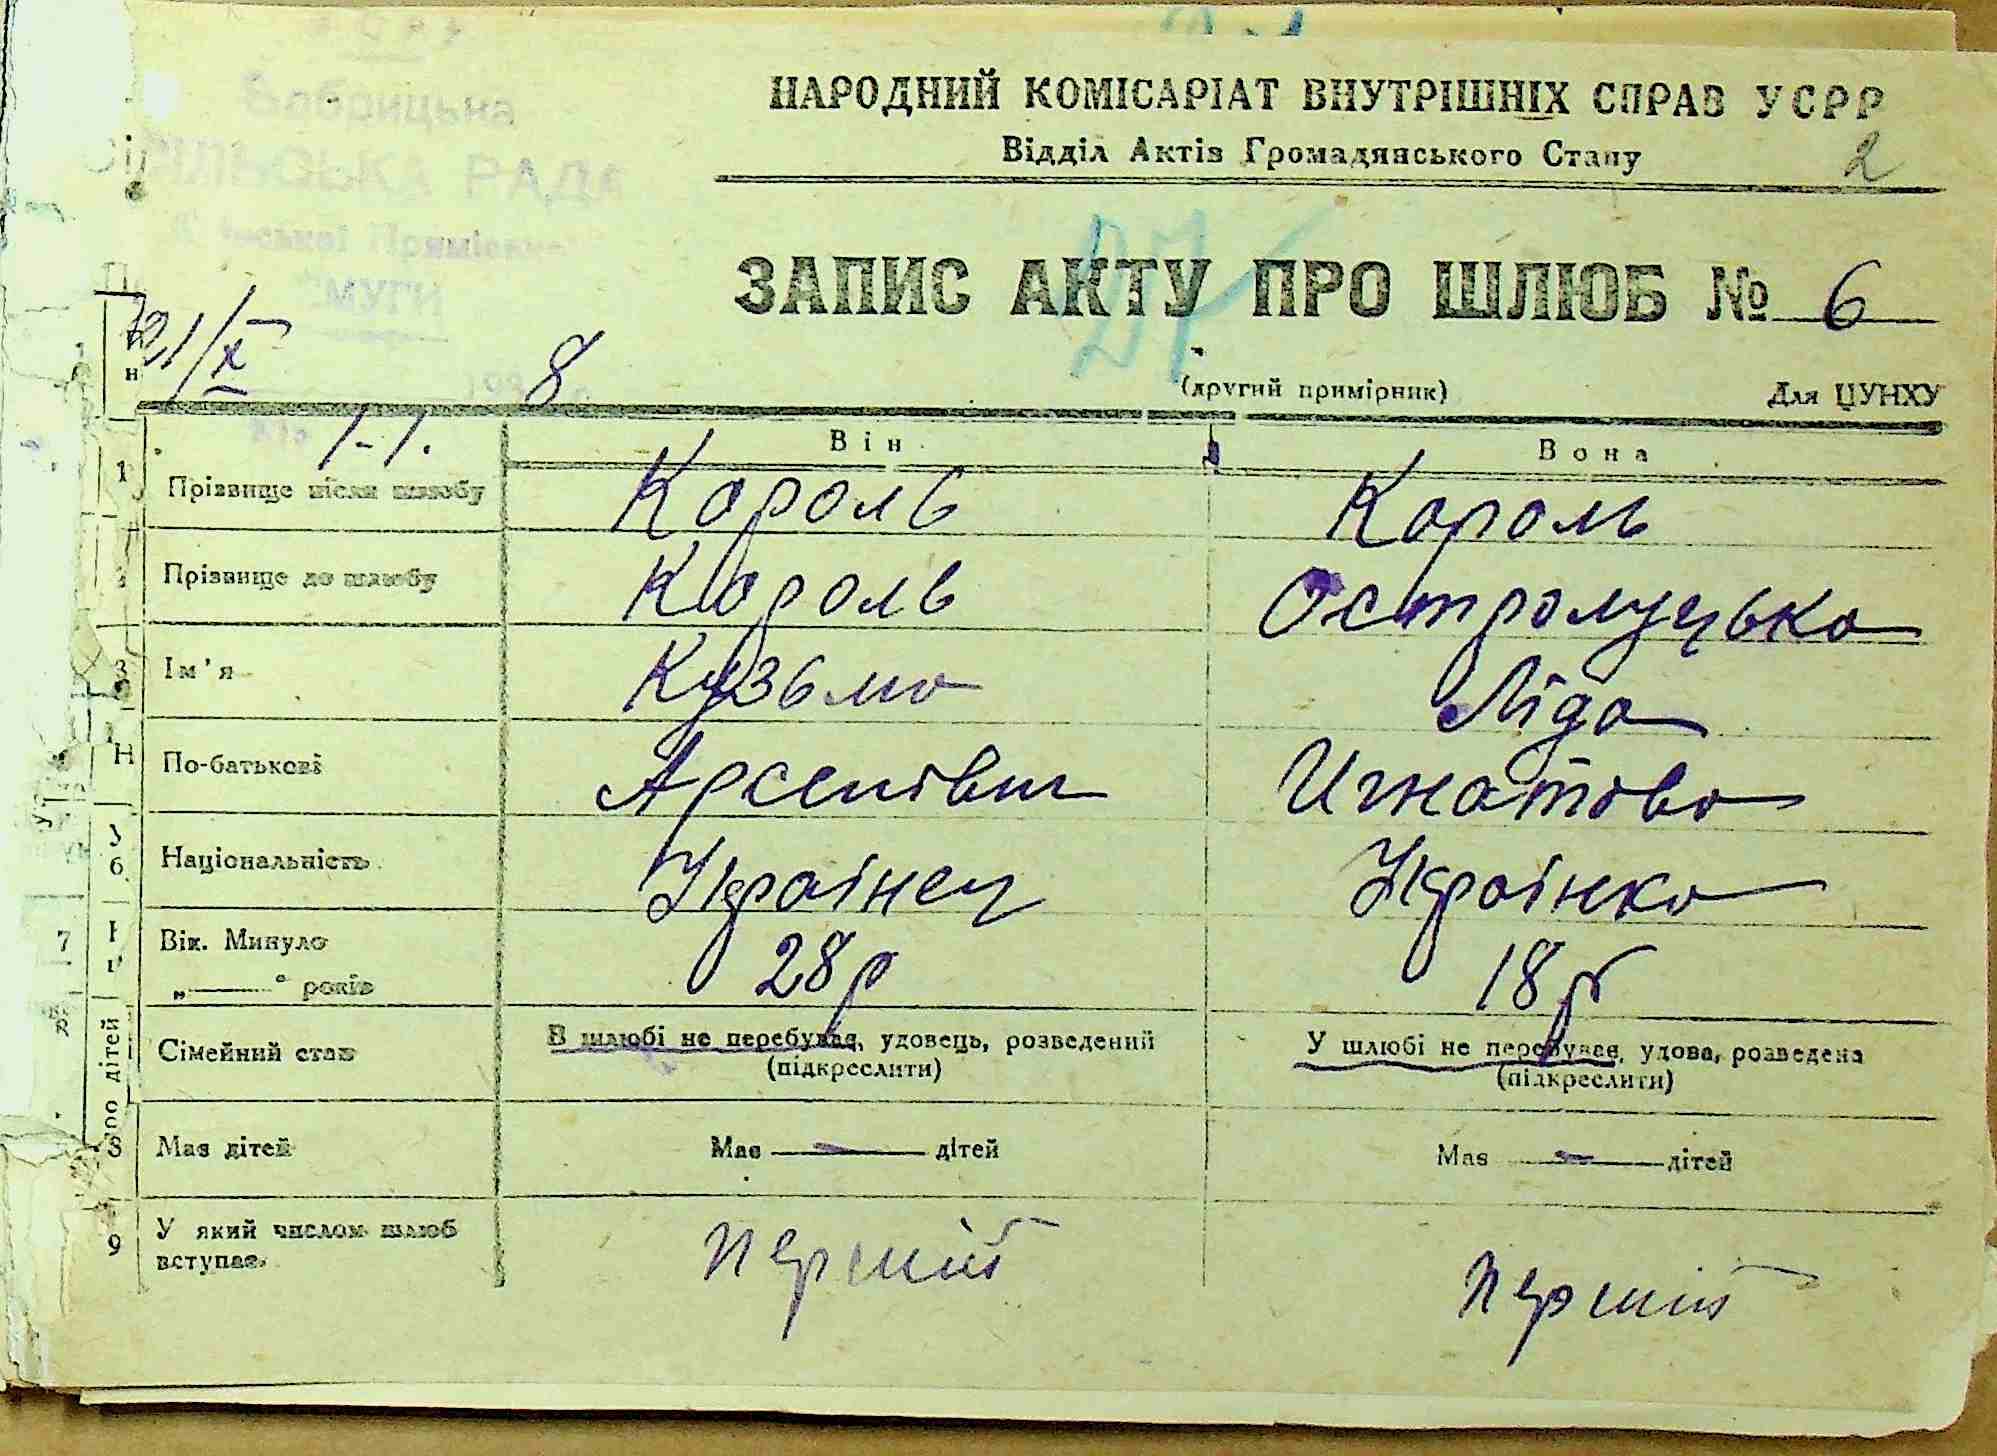 НАРОДНИЙ КОМІСАРІАТ ВНУТРІШНІХ СПРАВ УСРР
Відділ Актів Громадянського Стану
2
Бобрицька
СІЛЬСЬКА РАДА
Приміської
СМУГИ
27
ЗАПИС АКТУ ПРО ШЛЮБ № 6
21/X 193 8
(другий примірник) Для ЦУНХУ
Він Вона
1 Прізвище після шлюбу Король Король
Прізвище до шлюбу Король Остролуцька
3 Ім'я Кузьма Ліда
По-батькові Арсентівич Игнатова
Національність Українец Українка
Вік. Минуло
„——" років 28 р 18 р
Сімейний стан В шлюбі не перебував, удовець, розведений У шлюбі не перебував, удова, розведена
(підкреслити) (підкреслити)
8 Має дітей Має — дітей Має — дітей
9 У який числом шлюб
вступає перший перший
7
дітей